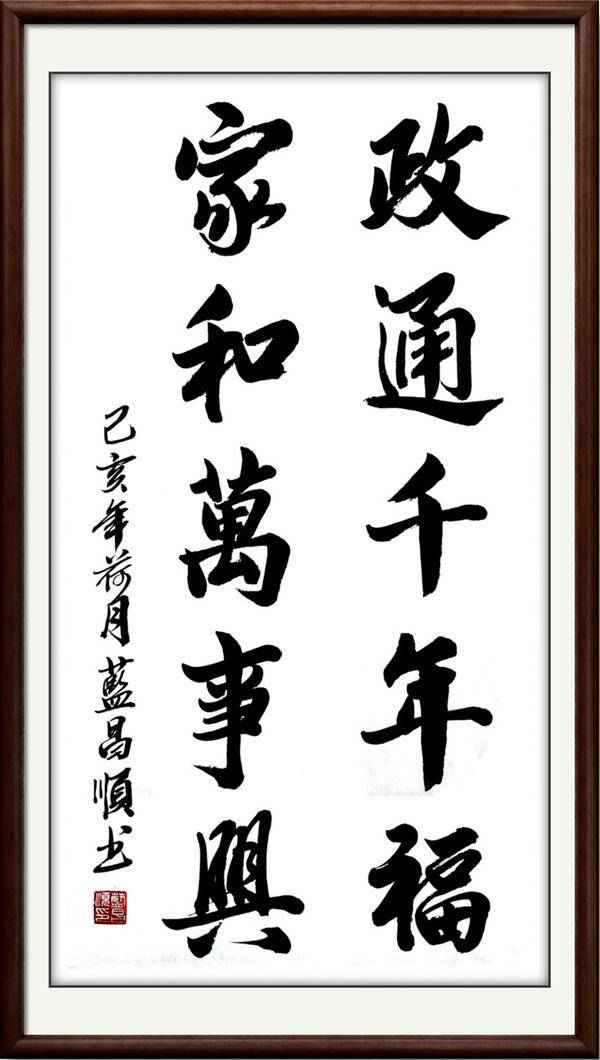 政通千年福
家和萬事興
己亥年荷月藍昌順书